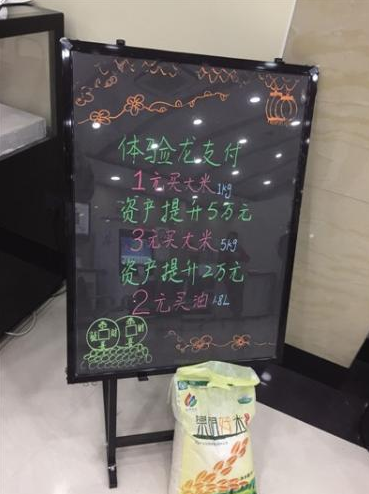 体验龙支付
1元买大米1kg
资产提升5万元
3元买大米5kg
资产提升2万元
2元买油1.8L